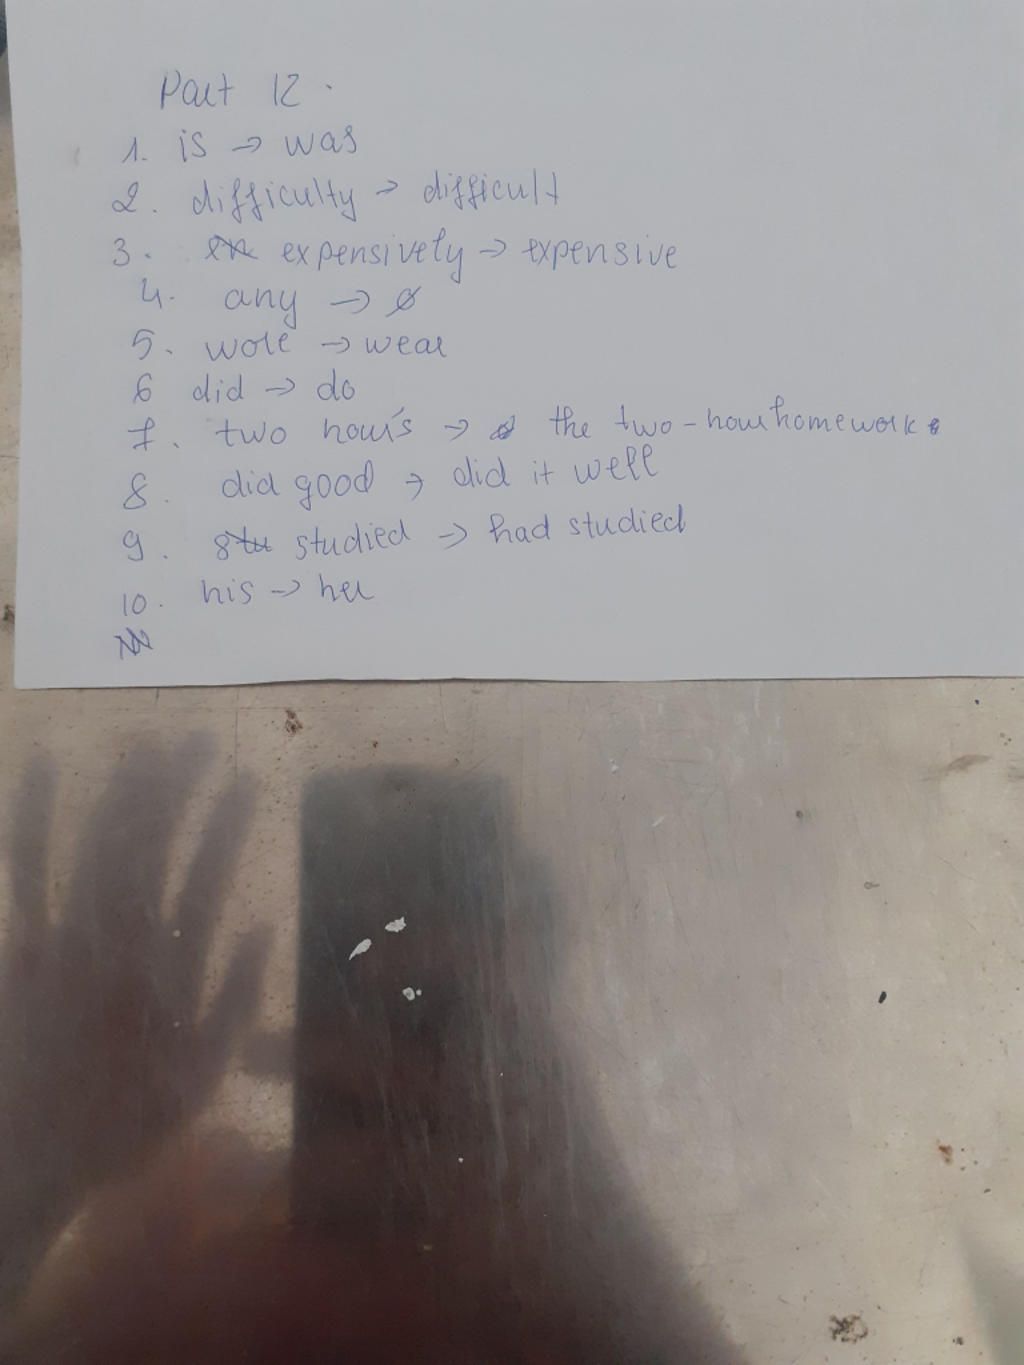 Part 12.
1. is → was
2. difficulty → difficult
3. expensively → expensive
4. any → ∅
5. wore → wear
6 did → do
7. two hour's → the two-hour homework
8. did good → did it well
9. studied → had studied
10. his → her